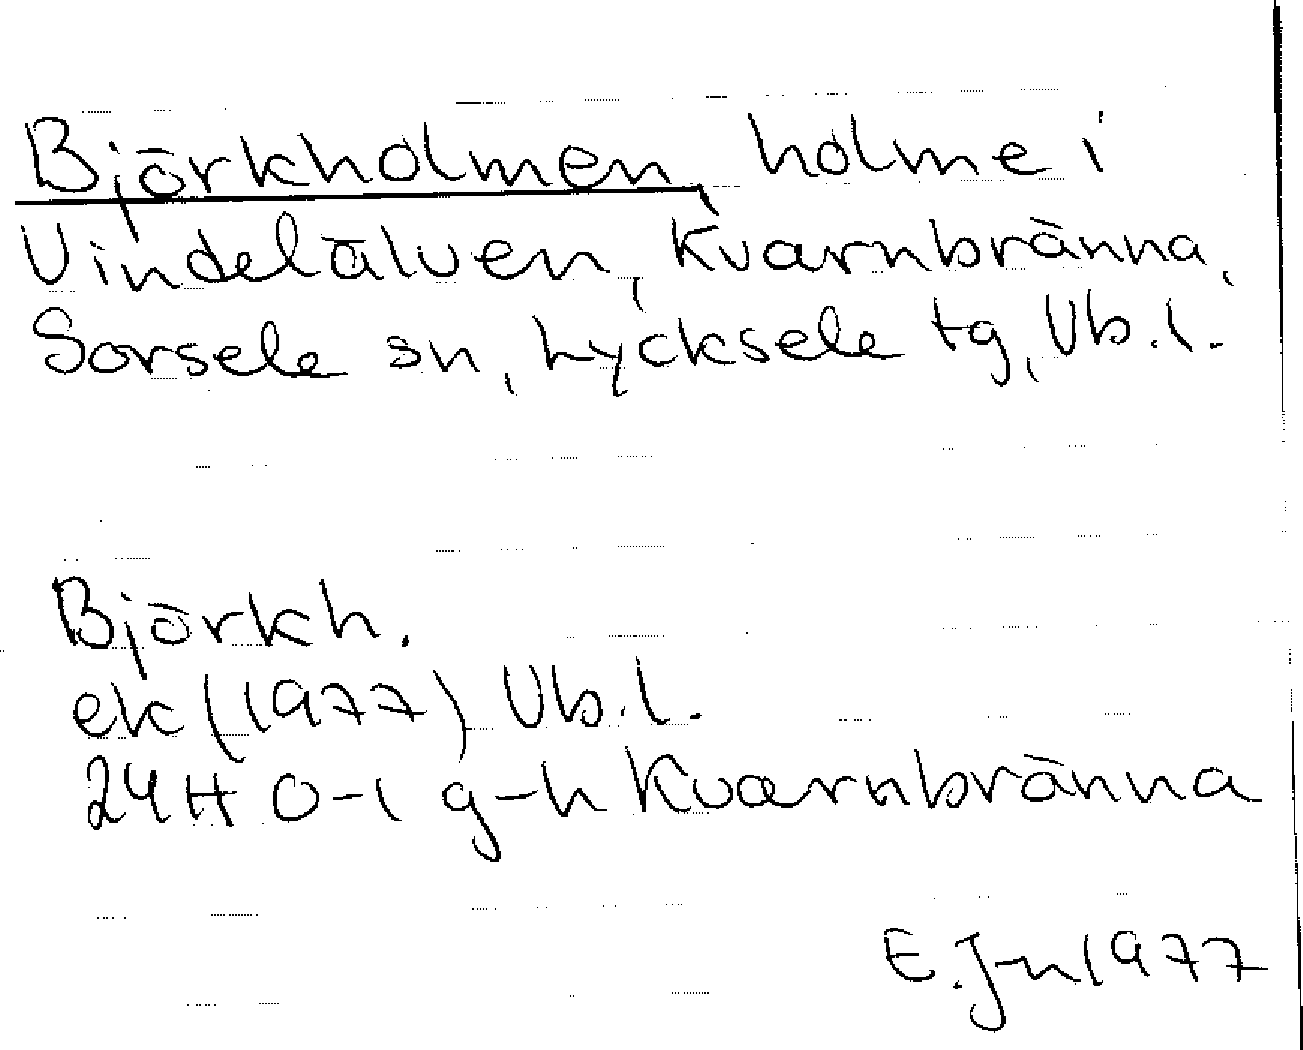 Björkholmen, holme i
Vindelälven, Kvarnbränna,
Sorsele sn, Lycksele tg, Vb.l.
Björkh.
ek (1977) Vb.l.
24H 0-1 g-h Kvarnbränna
E. J-n 1977